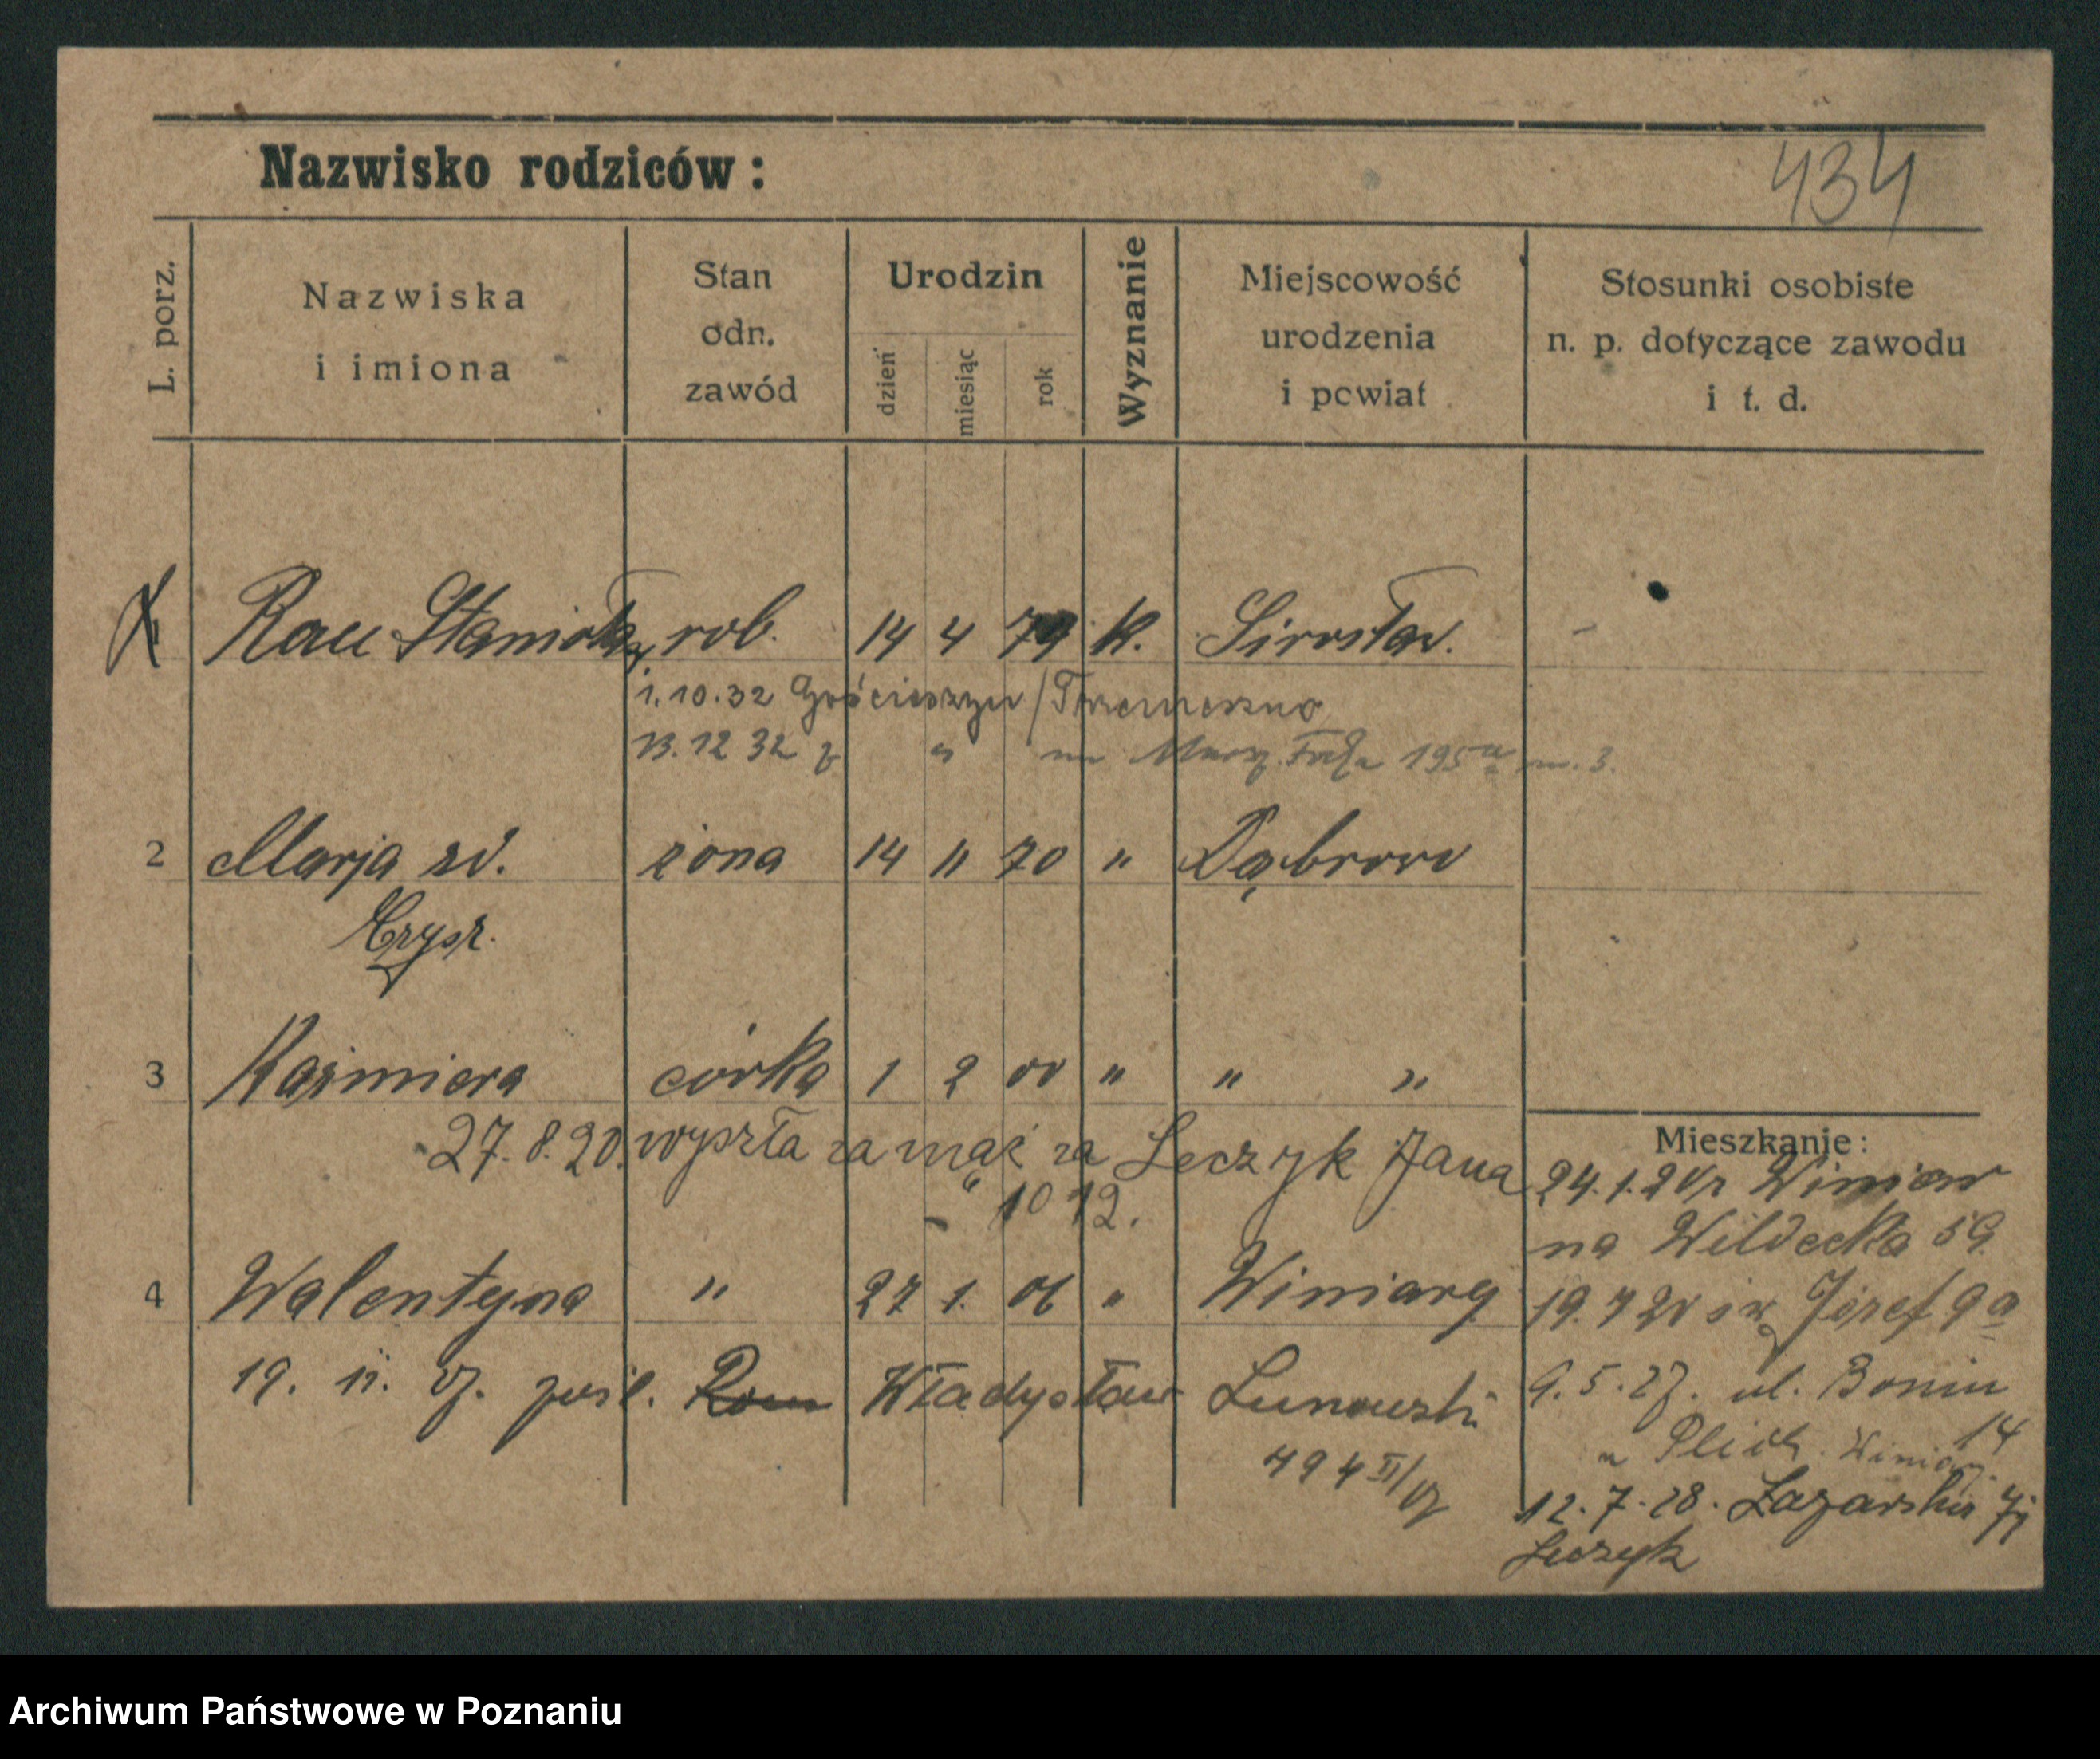 434
Nazwisko rodziców:
L. porz.
Nazwiska
i imiona
Stan
odn.
zawód
Urodzin
dzień
miesiąc
rok
Wyznanie
Miejscowość
urodzenia
i powiat
Stosunki osobiste
n. p. dotyczące zawodu
i t. d.
Rau Stanisław rob. 14 4 79 k. Sirosław. -
1.10.32 Gościeszyn / Trzemeszno
13.12 32 z " na Marsz. Focha 195a m. 3.
2 Marja zd. żona 14 11 70 " Dąbrowo
3 Kaźmiera córka 1 2 00 " " "
27. 8. 20. wyszła za mąż za Leczyk Jana
" 10 12.
4 Walentyna " 27 1. 06 " Winiary
19. 11. 27. Władysław
494 II/27
Mieszkanie:
24.1.20 z Winiar
na Wildecka 59.
19.7 20 św Józef 9a
9.5.27. ul. Bonin
14
12.7.28. Łazarska
Leczyk
Archiwum Państwowe w Poznaniu